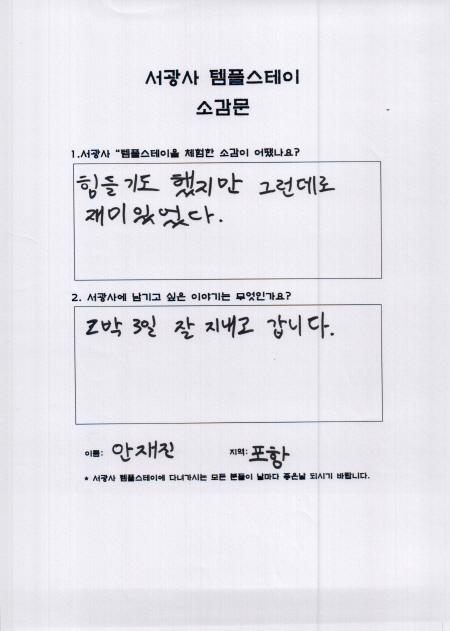 서광사 템플스테이
소감문
1.서광사 "템플스테이을 체험한 소감이 어땠나요?
힘들기도 했지만 그런데로
재미있었다.
2. 서광사에 남기고 싶은 이야기는 무엇인가요?
2박 3일 잘 지내고 갑니다.
이름: 안재진 지역: 포항
* 서광사 템플스테이에 다녀가시는 모든 분들이 날마다 좋은날 되시기 바랍니다.